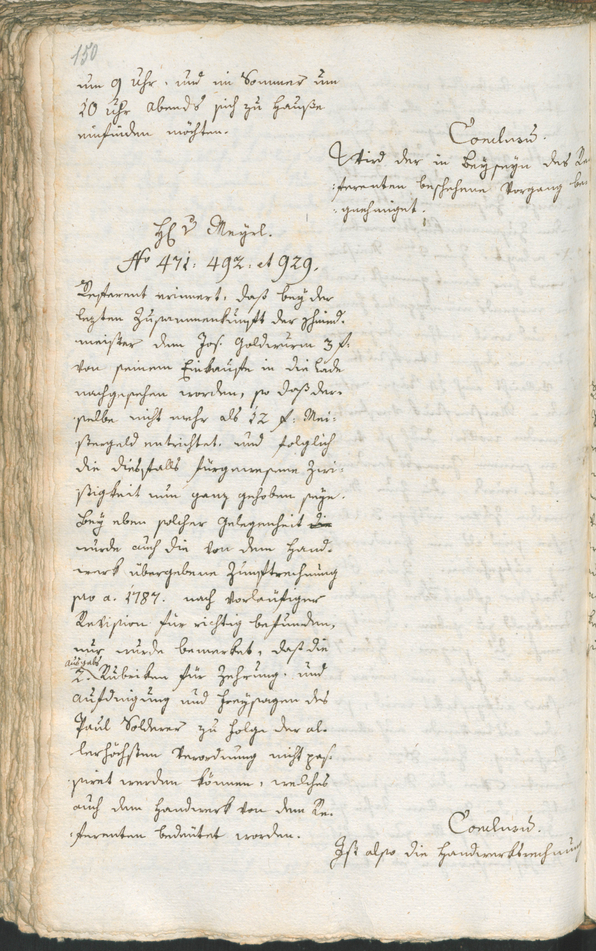 150
um 9 Uhr, und im Sommer um
10 Uhr abends sich zu Hauße
einfinden möchten.
Conclus.
Wird der in Beyseyn des Re
ferenten beschehene Vorgang be
gnehmiget.
Meyrl.
No 471: 492: et 929.
Referent erinnert, daß bey der
lezten Zusammenkunft der Schmid-
meister dem Jos. Goldwurm 3 f
von seinem Einkaufe in die Lade
nachgesehen worden, so daß der-
selbe nicht mehr als 12 f: Mei-
stergeld entrichtet, und folglich
die diesfalls fürgewesene Zwi-
stigkeit nun ganz gehoben seye.
Bey eben solcher Gelegenheit die
wurde auch die von dem Hand-
werk übergebene Zunftrechnung
pro a. 1787. nach vorläufiger
Revision für richtig befunden,
nur wurde bemerket, daß die
ausgabs
2 Rubriken für Zehrung, und
Aufdingung und Freysagen des
Paul Solderer zu Folge der al-
lerhöchsten Verordnung nicht pas-
siret werden können, welches
auch dem Handwerk von dem Re-
ferenten bedeutet worden.
Conclus.
Ist also die Handwerksrechnung